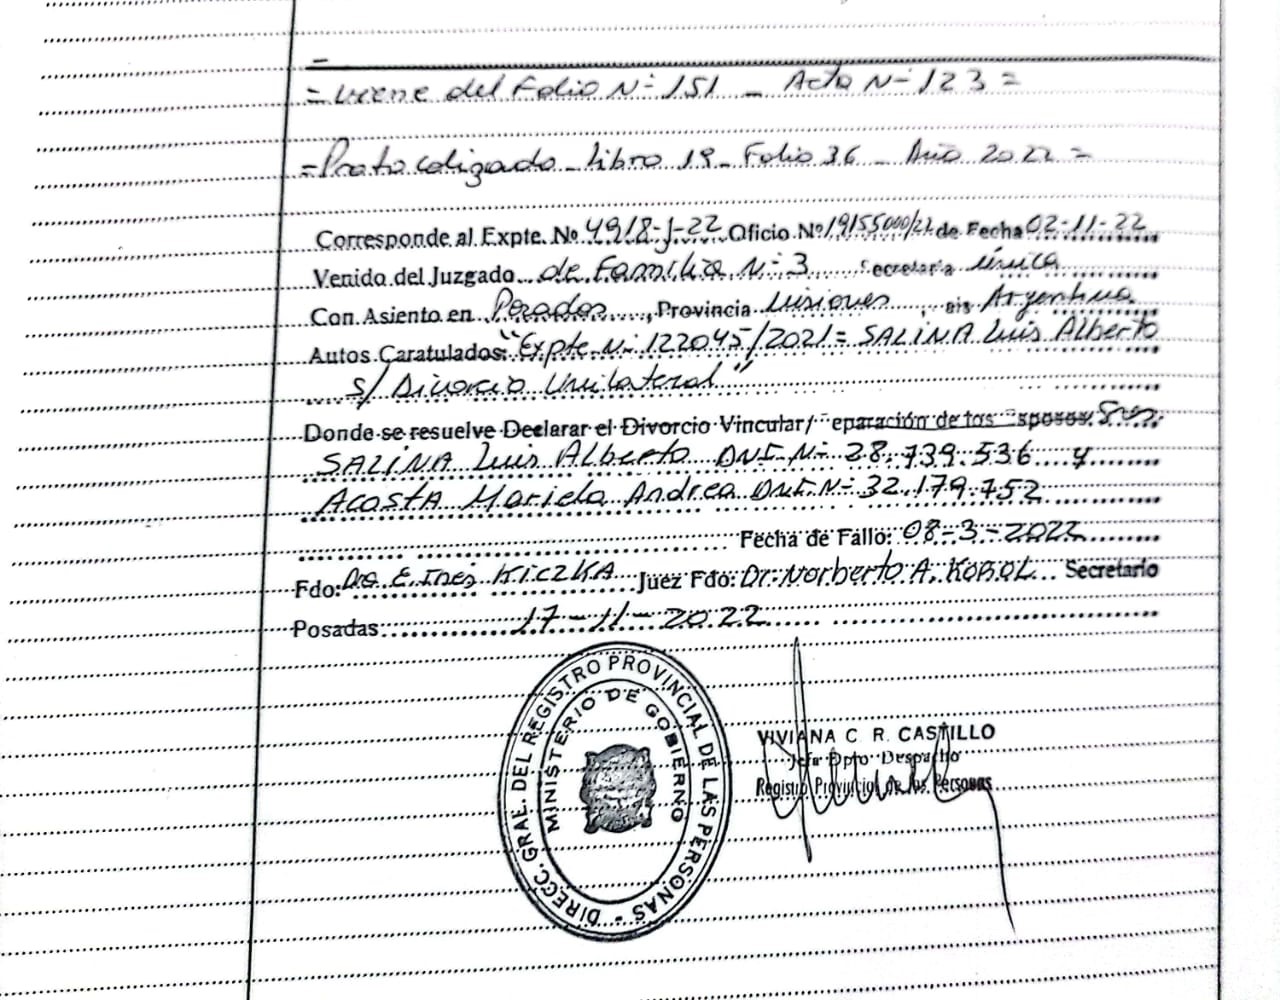 = Viene del Folio Nº 151 _ Acta Nº 123 =
= Protocolizado _ Libro 19 _ Folio 36 _ Año 2022 =
Corresponde al Expte. Nº 4918-J-22 Oficio Nº 19155000/22 de Fecha 02-11-22
Venido del Juzgado de Familia Nº 3 Secretaria Única
Con Asiento en Posadas, Provincia Misiones, ais Argentina
Autos Caratulados: "Expte. Nº 122045/2021 = SALINA Luis Alberto
s/ Divorcio Unilateral"
Donde se resuelve Declarar el Divorcio Vincular/ eparación de los Esposos Sres.
SALINA Luis Alberto DNI. Nº 28.739.536 y
ACOSTA Mariela Andrea DNI. Nº 32.179.752
Fecha de Fallo: 08-3-2022
Fdo: Dra. E. Inés KICZKA Juez Fdo: Dr. Norberto A. KOROL Secretario
Posadas: 17-11-2022
DIRECC. GRAL. DEL REGISTRO PROVINCIAL DE LAS PERSONAS -
MINISTERIO DE GOBIERNO
VIVIANA C. R. CASTILLO
Jefa Dpto Despacho
Registro Provincial de las Personas